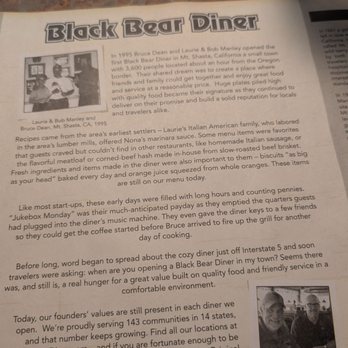 Black Bear Diner
In 1995 Bruce Dean and Laurie & Bob Manley opened the
first Black Bear Diner in Mt. Shasta, California a small town
with 3,600 people located about an hour from the Oregon
border. Their shared dream was to create a place where
friends and family could get together and enjoy great food
and service at a reasonable price. Huge plates piled high
with quality food became their signature as they continued to
deliver on their promise and build a solid reputation for locals
and travelers alike.
Laurie & Bob Manley and
Bruce Dean, Mt. Shasta, CA, 1995
Recipes came from the area's earliest settlers – Laurie's Italian American family, who labored
in the area's lumber mills, offered Nona's marinara sauce. Some menu items were favorites
that guests craved but couldn't find in other restaurants, like homemade Italian sausage, or
the flavorful meatloaf or corned-beef hash made in house from slow-roasted beef brisket.
Fresh ingredients and items made in the diner were also important to them – biscuits "as big
as your head" baked every day and orange juice squeezed from whole oranges. These items
are still on our menu today.
Like most start-ups, these early days were filled with long hours and counting pennies.
"Jukebox Monday" was their much-anticipated payday as they emptied the quarters guests
had plugged into the diner's music machine. They even gave the diner keys to a few friends
so they could get the coffee started before Bruce arrived to fire up the grill for another
day of cooking.
Before long, word began to spread about the cozy diner just off Interstate 5 and soon
travelers were asking: when are you opening a Black Bear Diner in my town? Seems there
was, and still is, a real hunger for a great value built on quality food and friendly service in a
comfortable environment.
Today, our founders' values are still present in each diner we
open. We're proudly serving 143 communities in 14 states,
and that number keeps growing. Find all our locations at
and if you are fortunate enough to be